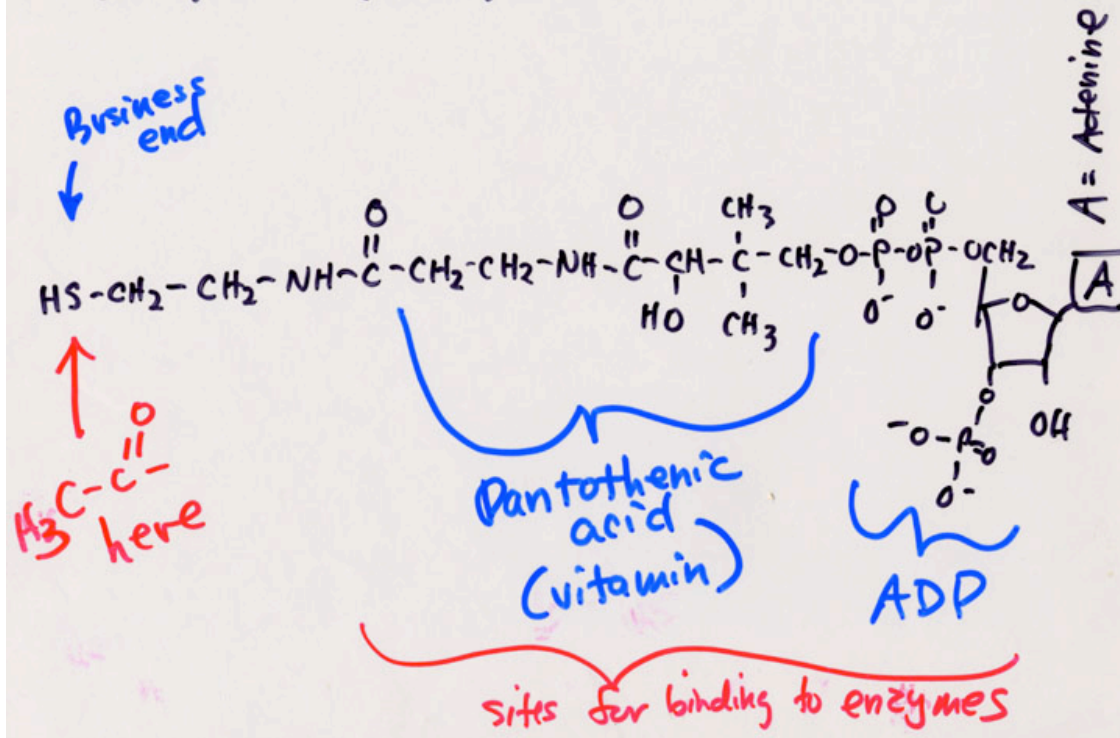 Business
end
A = Adenine
O O CH3 P O
HS-CH2-CH2-NH-C-CH2-CH2-NH-C-CH-C-CH2-O-P-OP-OCH2 O A
HO CH3 O- O-
O
-O-P=O OH
O-
O
H3C-C-
here
Pantothenic
acid
(vitamin)
ADP
sites for binding to enzymes